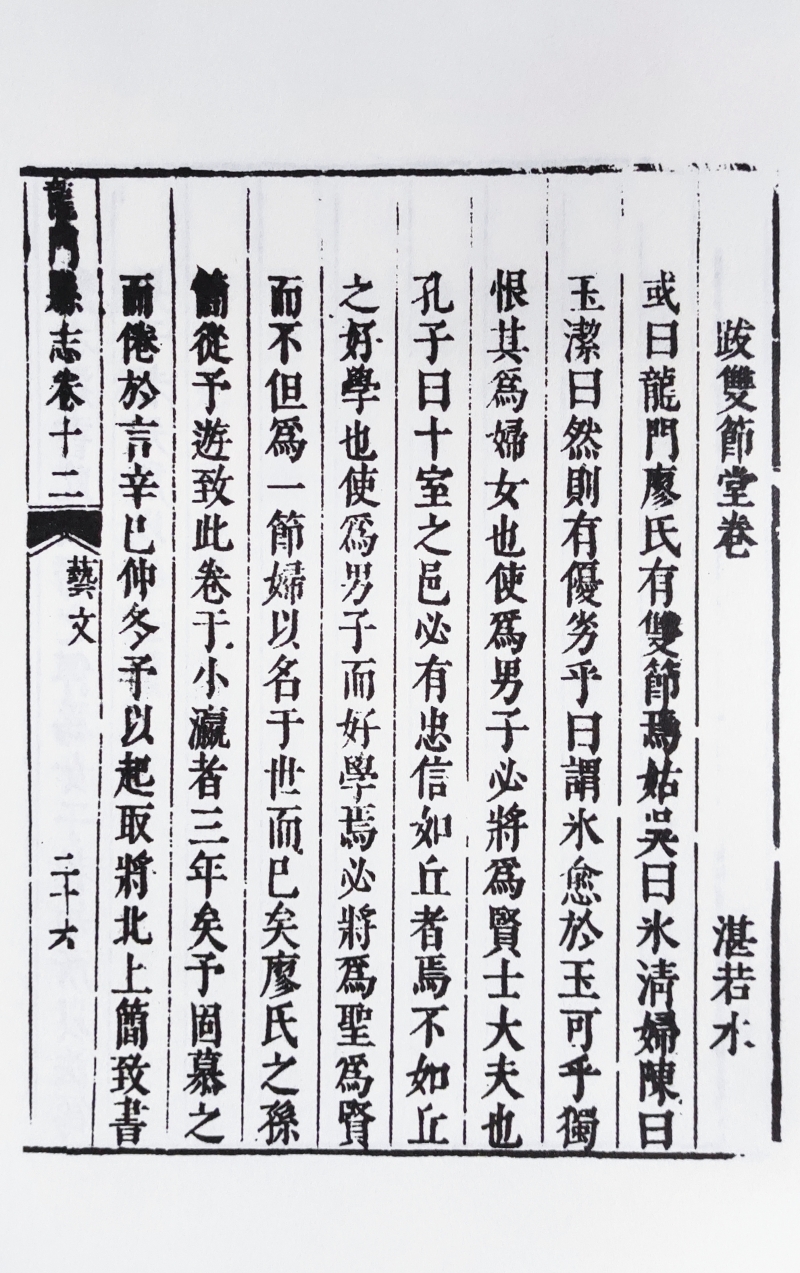 跋雙節堂卷 湛若水
或曰龍門廖氏有雙節焉姑吳曰氷清婦陳曰
玉潔曰然則有優劣乎曰謂氷愈於玉可乎獨
恨其爲婦女也使爲男子必將爲賢士大夫也
孔子曰十室之邑必有忠信如丘者焉不如丘
之好學也使爲男子而好學焉必將爲聖爲賢
而不但爲一節婦以名于世而已矣廖氏之孫
簡從予遊致此卷于小瀛者三年矣予固慕之
而倦於言辛巳仲冬予以起取將北上簡致書
龍門縣志卷十二 藝文 二十六